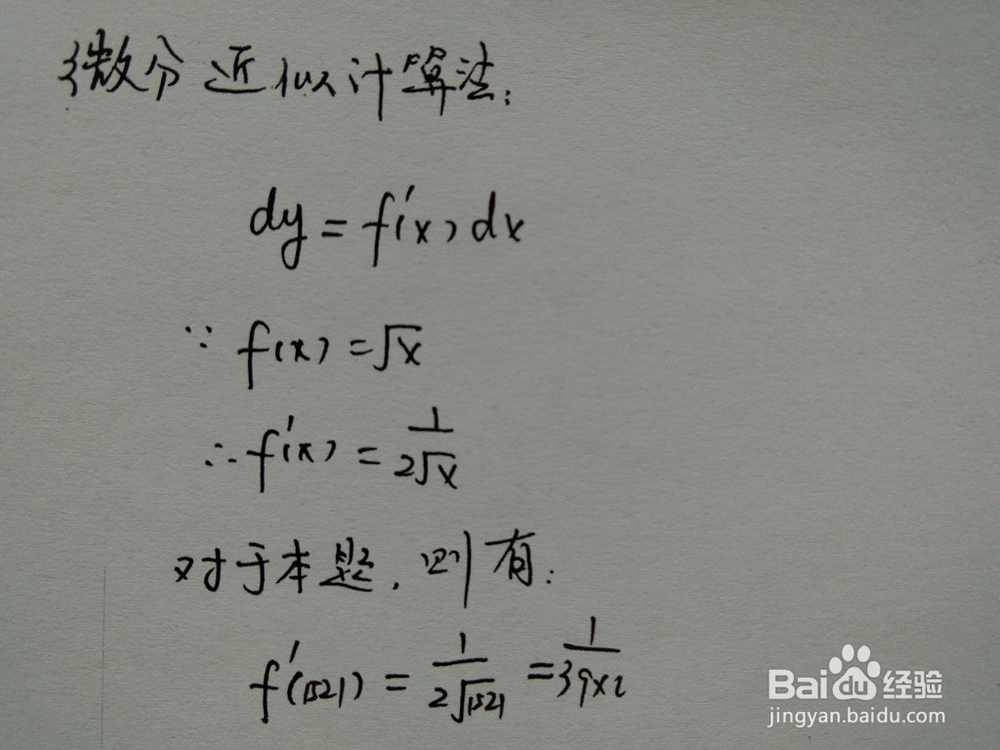 微分近似计算法:
dy = f'(x) dx
∵ f(x) = √x
∴ f'(x) = 1/(2√x)
对于本题,则有:
f'(1521) = 1/(2√1521) = 1/(39×2)
Baidu 经验
jingyan.baidu.com